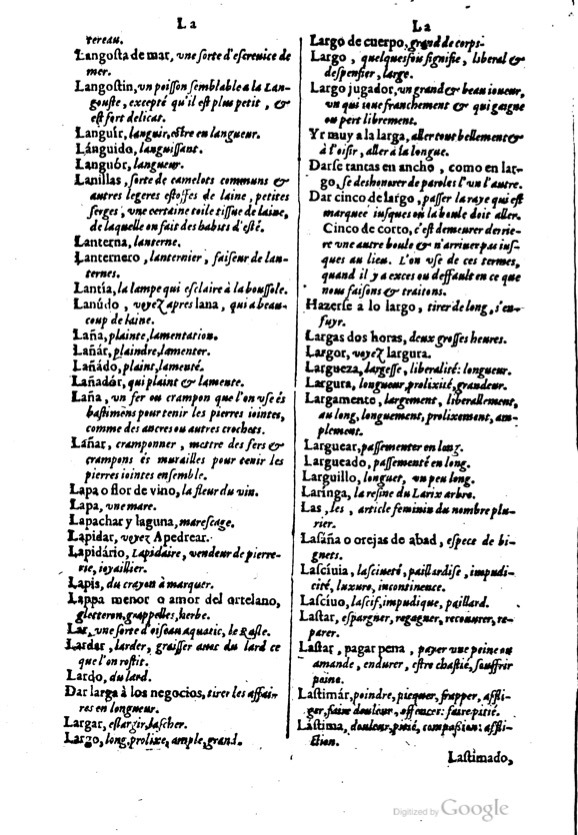 La
tereau.
Langosta de mar, vne sorte d'escreuice de
mer.
Langostin, vn poisson semblable a la Lan-
gouste, excepté qu'il est plus petit, &
est fort delicat.
Languír, languir, estre en langueur.
Lánguido, languissant.
Languór, langueur.
Lanillas, sorte de camelots communs &
autres legeres estoffes de laine, petites
serges, vne certaine toile tissue de laine,
de laquelle on fait des habits d'esté.
Lanterna, lanterne.
Lanternero, lanternier, faiseur de lan-
ternes.
Lantía, la lampe qui esclaire à la boussole.
Lanúdo, voyez apres lana, qui a beau-
coup de laine.
Laña, plainte, lamentation.
Lañár, plaindre, lamenter.
Lañádo, plaint, lamenté.
Lañadór, qui plaint & lamente.
Laña, vn fer ou crampon que l'on vse és
bastimens pour tenir les pierres iointes,
comme des ancres ou autres crochets.
Láñar, cramponner, mettre des fers &
crampons és murailles pour tenir les
pierres iointes ensemble.
Lapa o flor de vino, la fleur du vin.
Lapa, vne mare.
Lapachar y laguna, marescage.
Lapidar, voyez Apedrear.
Lapidário, Lapidaire, vendeur de pierre-
rie, ioyaillier.
Lapis, du crayon à marquer.
Lappa menor o amor del ortelano,
gletteron, grappelles, herbe.
Lar, vne sorte d'oiseau aquatic, le Rasle.
Lardar, larder, graisser auec du lard ce
que l'on rostit.
Lardo, du lard.
Dar larga à los negocios, tirer les affai-
res en longueur.
Largar, eslargir, lascher.
Largo, long, prolixe, ample, grand.
La
Largo de cuerpo, grand de corps.
Largo, quelquesfois signifie, liberal &
despensier, large.
Largo jugador, vn grand & beau ioueur,
vn qui ioue franchement & qui gagne
ou pert librement.
Yr muy a la larga, aller tout bellement &
à l'oisir, aller à la longue.
Darse tantas en ancho, como en lar-
go, se deshonorer de paroles l'vn l'autre.
Dar cinco de largo, passer la raye qui est
marquee iusques ou la boule doit aller.
Cinco de corto, c'est demeurer derrie-
re vne autre boule & n'arriuer pas ius-
ques au lieu. L'on vse de ces termes,
quand il y a exces ou deffault en ce que
nous faisons & traitons.
Hazerse a lo largo, tirer de long, s'en-
fuyr.
Largas dos horas, deux grosses heures.
Largor, voyez largura.
Largueza, largesse, liberalité: longueur.
Largura, longueur, prolixité, grandeur.
Largamente, largement, liberallement,
au long, longuement, prolixement, am-
plement.
Larguear, passementer en long.
Largueado, passementé en long.
Larguillo, longuet, vn peu long.
Laringa, la resine du Larix arbre.
Las, les, article feminin du nombre plu-
rier.
Lasáña o orejas de abad, espece de bi-
gnets.
Lascíuia, lasciueté, paillardise, impudi-
cité, luxure, incontinence.
Lascíuo, lascif, impudique, paillard.
Lastar, espargner, regagner, recouurer, re-
parer.
Lastar, pagar pena, payer vne peine ou
amande, endurer, estre chastié, souffrir
peine.
Lastimár, poindre, picquer, frapper, affli-
ger, faire douleur, offencer: faire pitié.
Lástima, douleur, pitié, compassion: affli-
ction.
Lastimado,
Digitized by Google